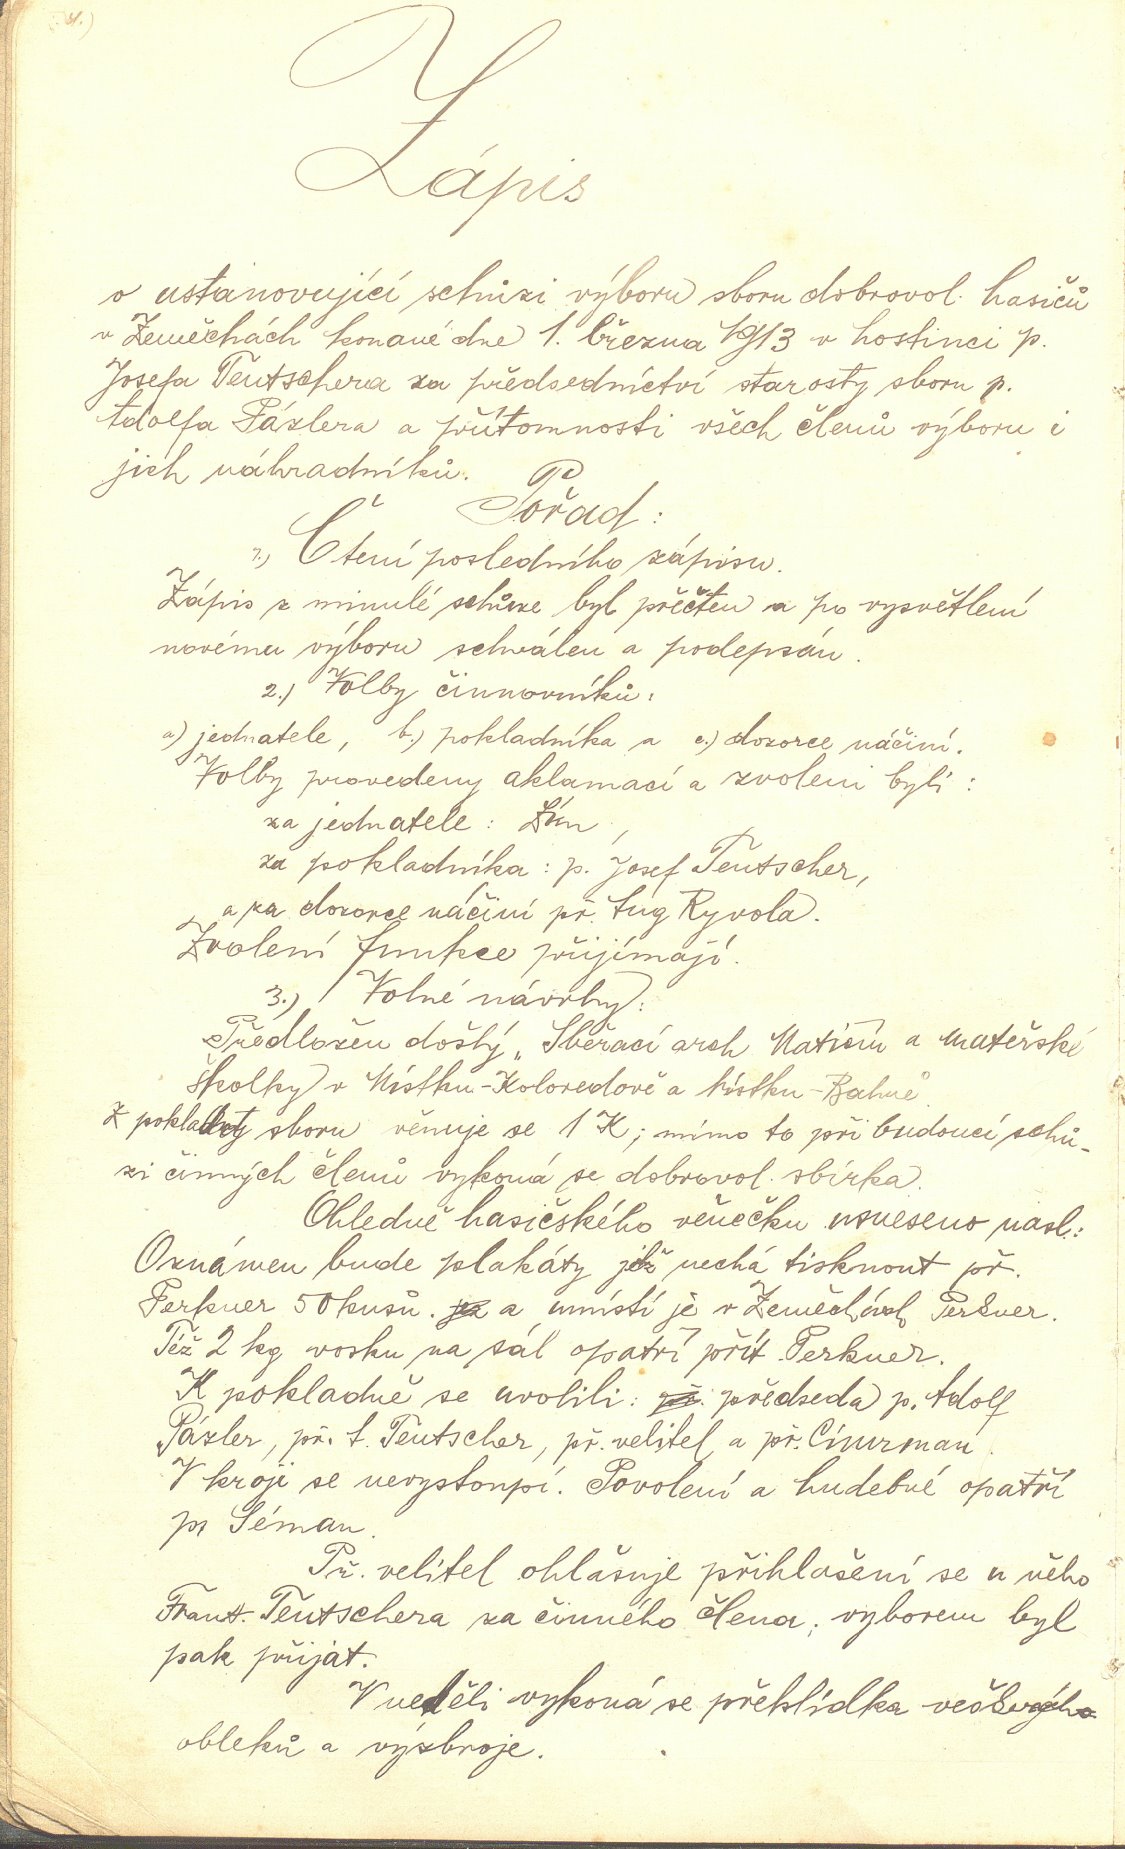 4.)
Zápis
o ustanovující schůzi výboru sboru dobrovol. hasičů
v Zeměchách konané dne 1. března 1913 v hostinci p.
Josefa Teutschera za předsednictví starosty sboru p.
Adolfa Pázlera a přítomnosti všech členů výboru i
jich náhradníků.
Pořad:
1.) Čtení posledního zápisu.
Zápis z minulé schůze byl přečten a po vysvětlení
novému výboru schválen a podepsán.
2.) Volby činnovníků:
a) jednatele, b.) pokladníka a c.) dozorce náčiní.
Volby provedeny aklamací a zvoleni byli:
za jednatele: Zím,
za pokladníka: p. Josef Teutscher,
a za dozorce náčiní př. Aug Ryvola.
Zvolení funkce přijímají.
3.) Volné návrhy:
Předložen došlý „Sběrací arch Matiční a mateřské
školky v Místku-Koloredově a Místku-Bahně.
Z pokladny sboru věnuje se 1 K; mimo to při budoucí schů-
zi činných členů vykoná se dobrovol. sbírka.
Ohledně hasičského věnečku usneseno násl.:
Oznámen bude plakáty jež nechá tisknout př.
Perkner 50 kusů. a umístí je v Zeměchách Perkner.
Též 2 kg vosku na sál opatří přít. Perkner.
K pokladně se uvolili: předseda p. Adolf
Pázler, př. A. Teutscher, př. velitel a př. Cimrman.
V kroji se nevystoupí. Povolení a hudebné opatří
p. Séman.
Př. velitel ohlašuje přihlašení se u něho
Frant. Teutschera za činného člena; výborem byl
pak přijat.
V neděli vykoná se přehlídka veškerých
obleků a výzbroje.